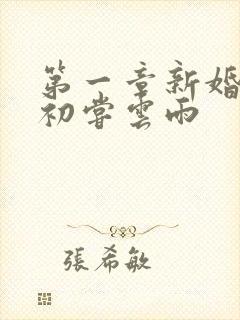 第一章新婚
初嘗雲雨
張希敏